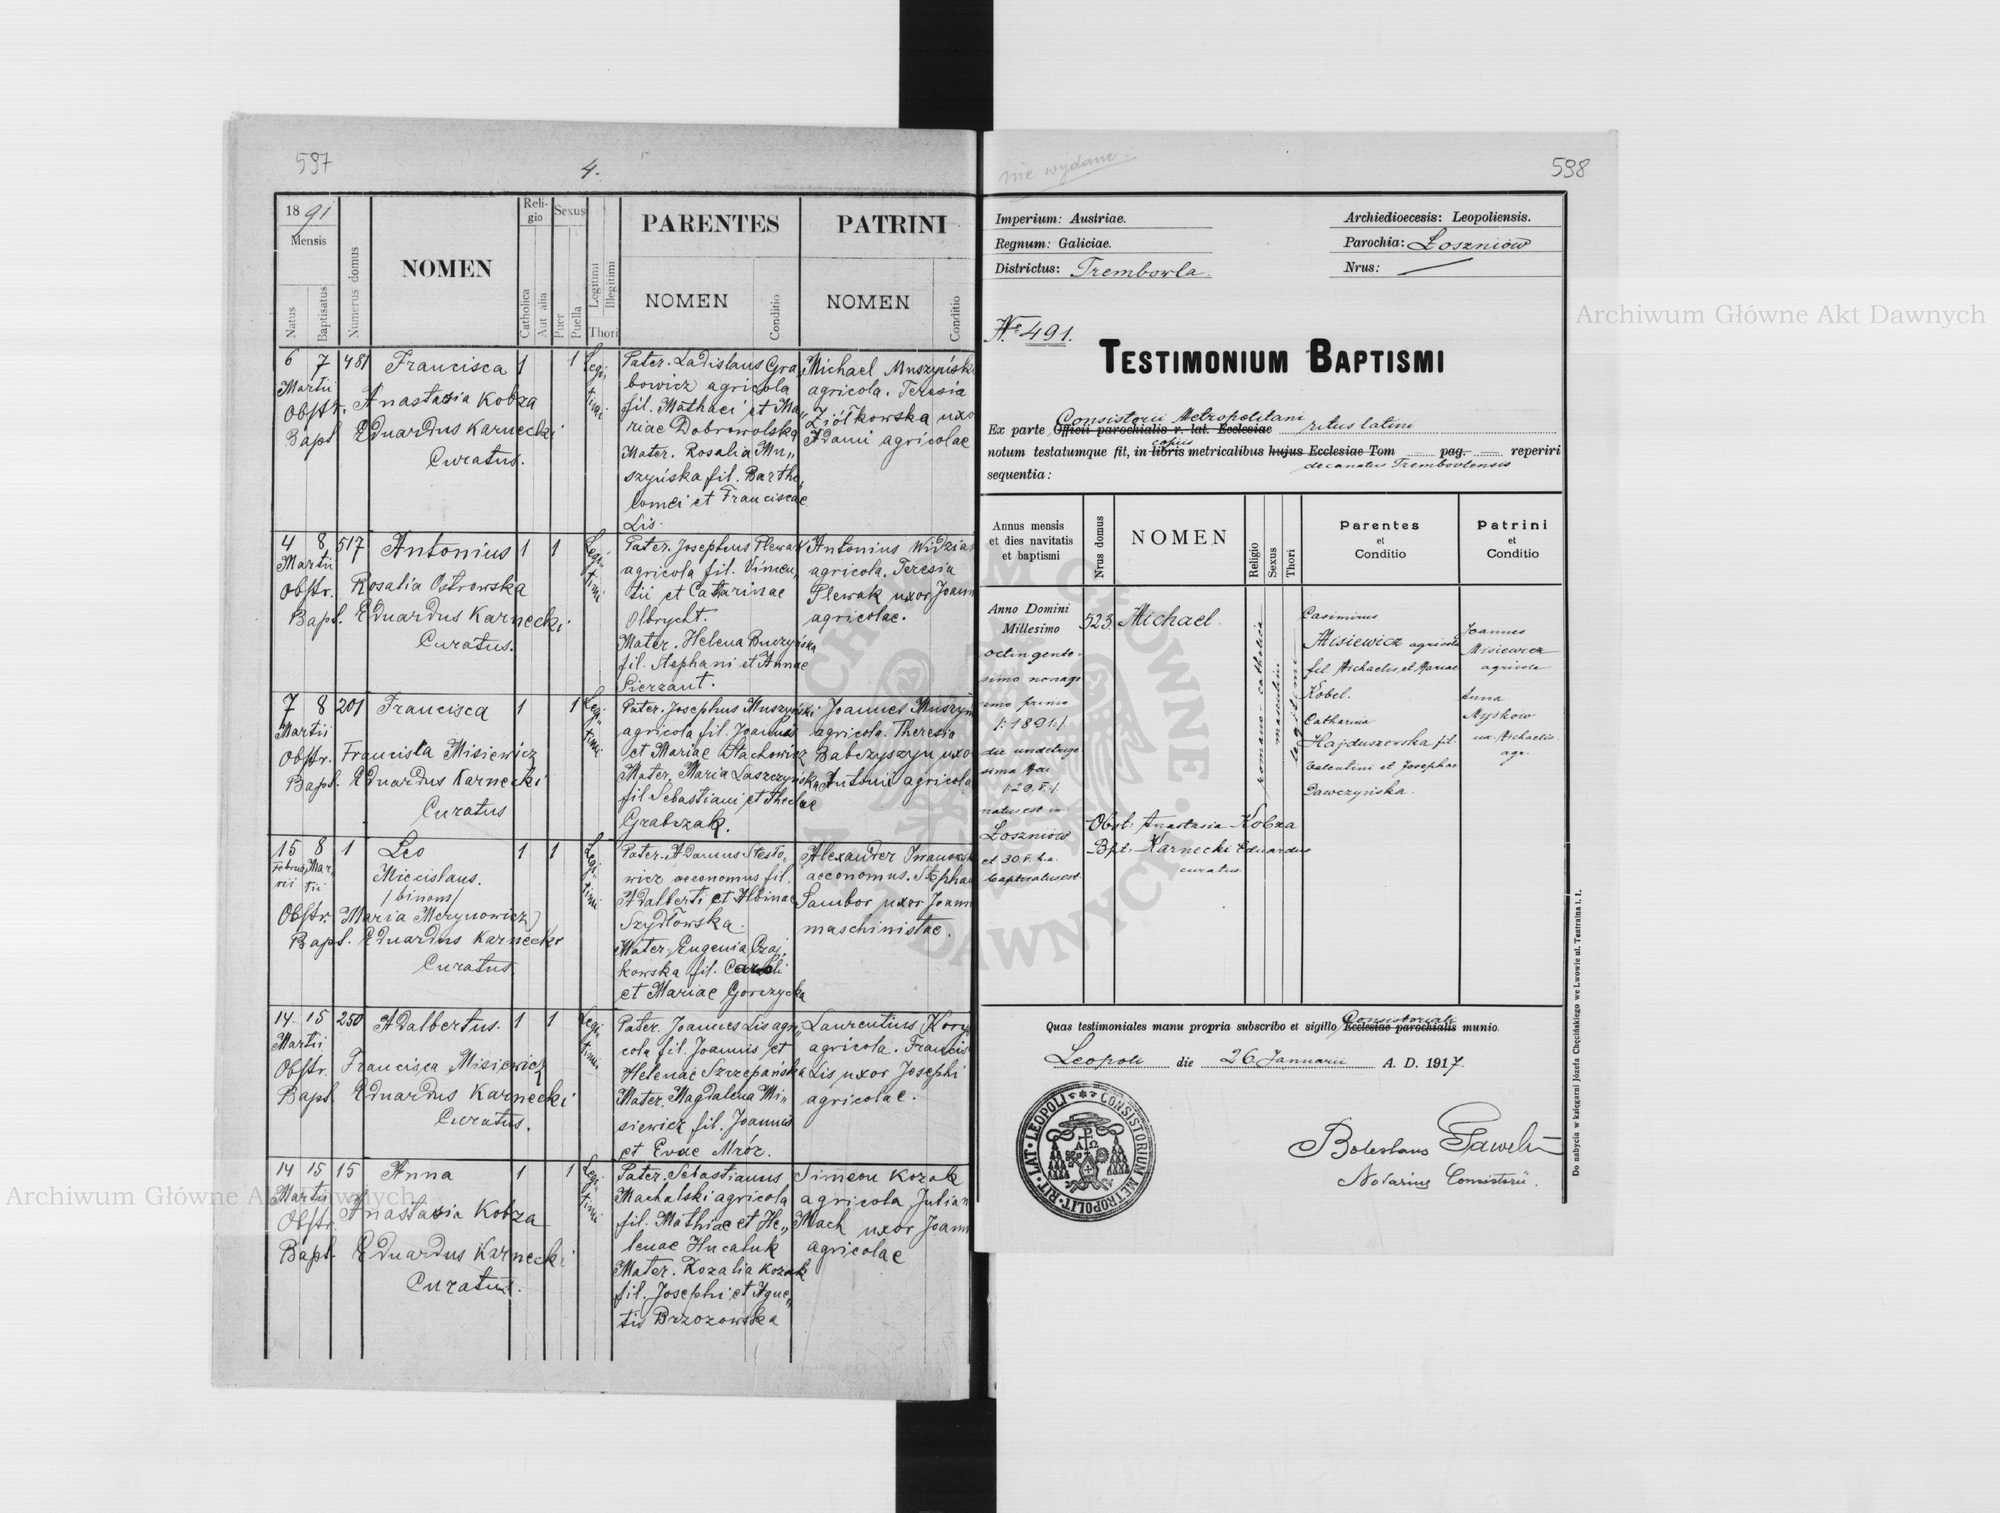 597
4.
1891
Mensis
Natus
Baptisatus
Numerus domus
NOMEN
Reli-
gio
Catholica
Aut alia
Sexus
Puer
Puella
Legitimi
Illegitimi
Thori
PARENTES
NOMEN
Conditio
PATRINI
NOMEN
Conditio
6 7 481 Francisca 1 1 Legi-
timi
Martii
Obstr. Anastazia Kobza
Bapt. Eduardus Karnecki
Curatus.
Pater. Ladislaus Gra
bowicz agricola
fil. Mathaei et Ma„
riae Dobrowolska
Mater. Rosalia Mu„
szyńska fil. Bartho„
lomei et Franciscae
Lis.
Michael Muszyńsk
agricola. Teresia
Ziółkowska uxo
Adami agricolae
4 8 517 Antonius 1 1 Legi-
timi
Martii
Obstr. Rosalia Ostrowska
Bapt. Eduardus Karnecki
Curatus.
Pater. Josephus Plewak
agricola fil. Vincen„
tii et Catharinae
Olbrycht.
Mater. Helena Buczyńska
fil. Stephani et Annae
Pierzant.
Antonius Widzia
agricola. Teresia
Plewak uxor Joann
agricolae.
7 8 201 Francisca 1 1 Legi-
timi
Martii
Obstr. Francisca Misiewicz
Bapt. Eduardus Karnecki
Curatus
Pater. Josephus Muszyński
agricola fil. Joannis
et Mariae Stachowicz
Mater. Maria Laszczyńska
fil Sebastiani et Theclae
Grabczak.
Joannes Muszyń
agricola. Theresia
Babczyszyn uxo
Antonii agricola
15 8 1 Leo 1 1 Legi-
timi
Februa„ Mar„
rii tii
Miecislaus.
/binom/
Obstr. Maria Merynowicz
Bapt. Eduardus Karnecki
Curatus
Pater. Adamus Stesło„
wicz oeconomus fil.
Adalberti et Albinae
Szydłowska.
Mater. Eugenia Czaj„
kowska fil. Caroli
et Mariae Gorczycka
Alexander Iwanowsk
oeconomus. Stepha
Sambor uxor Joann
maschinistae.
14 15 250 Adalbertus. 1 1 Legi-
timi
Martii
Obstr. Francisca Misiewicz
Bapt. Eduardus Karnecki
Curatus.
Pater. Joannes Lis agri„
cola fil. Joannis et
Helenae Szczepańska
Mater. Magdalena Mi„
siewicz fil. Joannis
et Evae Mróz.
Laurentius Kory
agricola. Francis
Lis uxor Josephi
agricolae.
14 15 15 Anna 1 1 Legi-
timi
Martii
Obstr. Anastazia Kobza
Bapt. Eduardus Karnecki
Curatus.
Pater. Sebastianus
Machalski agricola
fil. Mathiae et He„
lenae Hucaluk
Mater. Rozalia Kozak
fil. Josephi et Agne„
tis Brzozowska
Simeon Kozak
agricola Julian
Mach uxor Joann
agricolae
nie wydane.
598
Imperium: Austriae.
Regnum: Galiciae.
Districtus: Trembowla.
Archiedioecesis: Leopoliensis.
Parochia: Łoszniów
Nrus: —
Nr 491.
TESTIMONIUM BAPTISMI
Consistorii Metropolitani
Ex parte Officii parochialis r. lat. Ecclesiae ritus latini
copiis
notum testatumque fit, in libris metricalibus hujus Ecclesiae Tom pag. reperiri
decanatus Trembovlensis
sequentia:
Annus mensis
et dies navitatis
et baptismi
Nrus domus
NOMEN
Religio
Sexus
Thori
Parentes
et
Conditio
Patrini
et
Conditio
Anno Domini
Millesimo
octingente-
simo nonage
simo primo
/:1891:/
die undetrige
sima Mai
/:29.V.:/
natus est in
Łoszniów
et 30.V. h.a.
baptisatus est.
523.
Michael.
Obst: Anastasia Kobza
Bpt: Karnecki Eduardus
curatus.
romano-catholica
masculini
legitimi
Casimirus
Misiewicz agricola
fil Michaelis et Mariae
Kobel.
Catharina
Hajduszewska fil.
Valentini et Josephae
Dawczyńska.
Joannes
Misiewicz
agricola
Anna
Myskow
ux. Michaelis
agr.
Consistoriali
Quas testimoniales manu propria subscribo et sigillo Ecclesiae parochialis munio.
Leopoli die 26. Januarii A. D. 1917.
CONSISTORIUM METROPOLIT. RIT. LAT. LEOPOLI
Boleslaus
Notarius Consistorii.
Do nabycia w księgarni Józefa Chęcińskiego we Lwowie ul. Teatralna l. 1.
Archiwum Główne Akt Dawnych
Archiwum Główne Akt Dawnych
ARCHIWUM GŁÓWNE AKT DAWNYCH